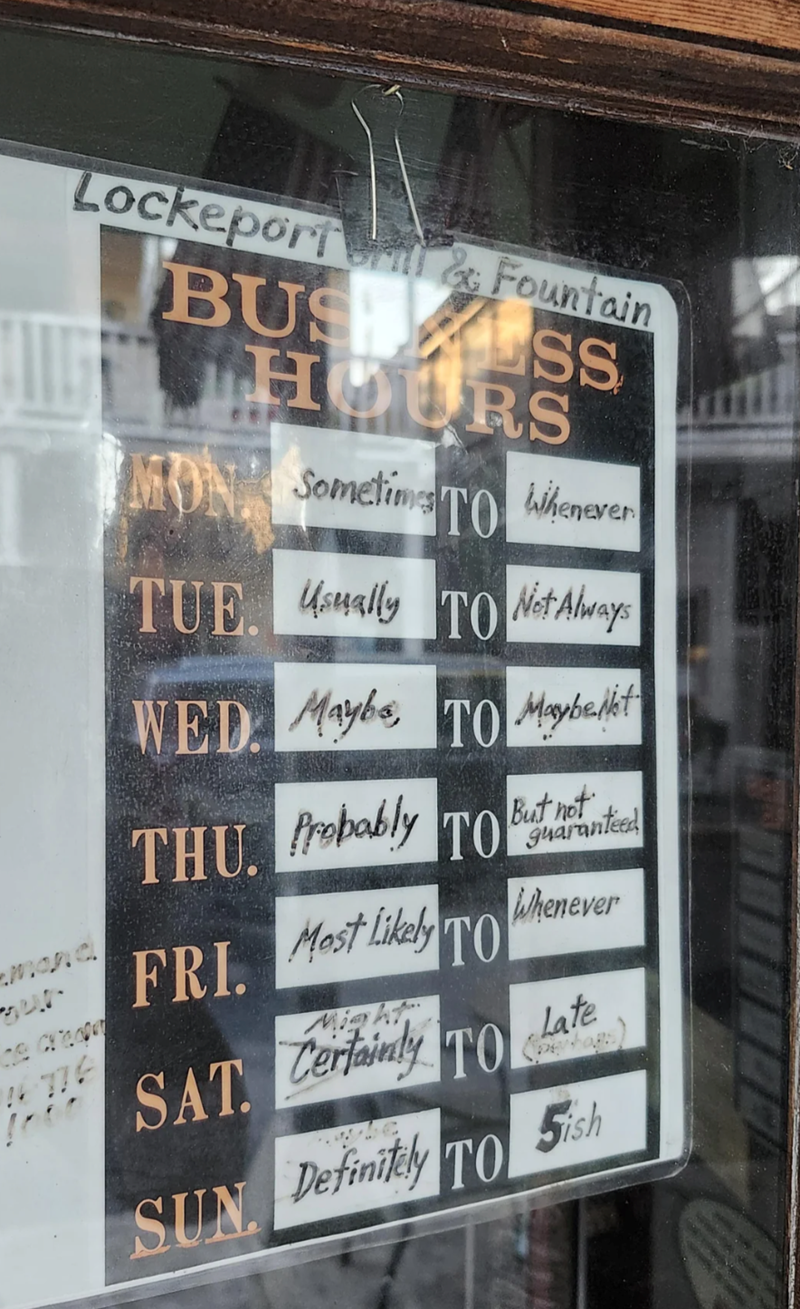 Lockeport Grill & Fountain
BUSINESS
HOURS
MON. Sometimes TO Whenever
TUE. Usually TO Not Always
WED. Maybe TO Maybe Not
THU. Probably TO But not
guaranteed
FRI. Most Likely TO Whenever
Might
SAT. Certainly TO Late
(perhaps)
maybe
SUN. Definitely TO 5ish
our
ce cream